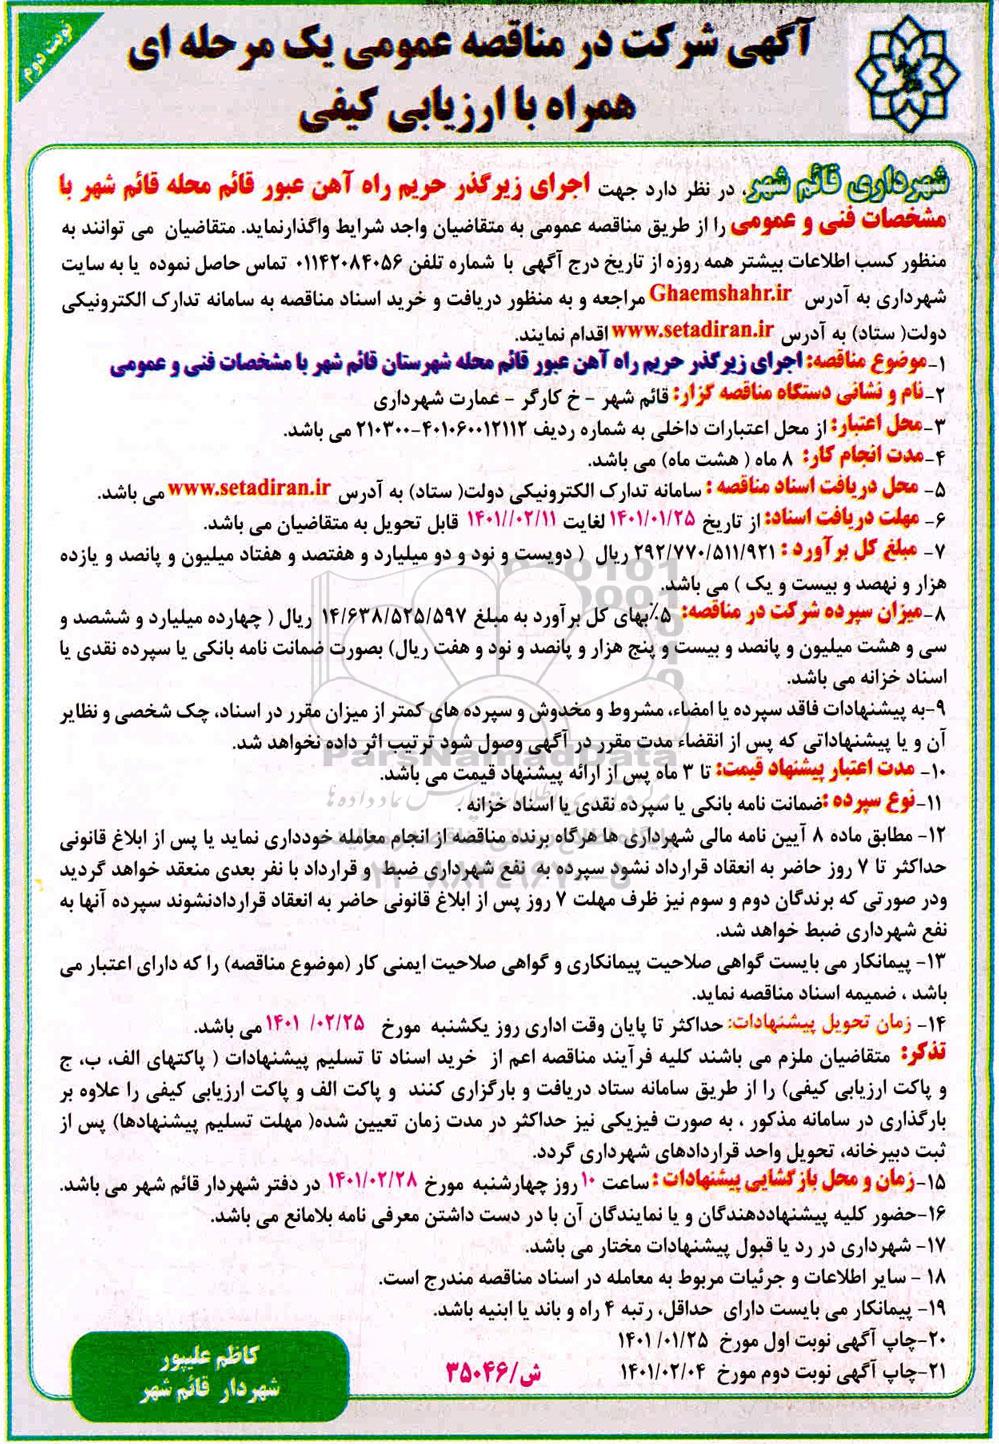 نوبت دوم
آگهی شرکت در مناقصه عمومی یک مرحله ای
همراه با ارزیابی کیفی
شهرداری قائم شهر، در نظر دارد جهت اجرای زیرگذر حریم راه آهن عبور قائم محله قائم شهر با
مشخصات فنی و عمومی را از طریق مناقصه عمومی به متقاضیان واجد شرایط واگذارنماید. متقاضیان می توانند به
منظور کسب اطلاعات بیشتر همه روزه از تاریخ درج آگهی با شماره تلفن ۰۱۱۴۲۰۸۴۰۵۶ تماس حاصل نموده یا به سایت
شهرداری به آدرس Ghaemshahr.ir مراجعه و به منظور دریافت و خرید اسناد مناقصه به سامانه تدارک الکترونیکی
دولت( ستاد) به آدرس www.setadiran.ir اقدام نمایند.
۱-موضوع مناقصه: اجرای زیرگذر حریم راه آهن عبور قائم محله شهرستان قائم شهر با مشخصات فنی و عمومی
۲-نام و نشانی دستگاه مناقصه گزار: قائم شهر - خ کارگر - عمارت شهرداری
۳-محل اعتبار: از محل اعتبارات داخلی به شماره ردیف ۴۰۱۰۶۰۰۱۲۱۱۲-۲۱۰۳۰۰ می باشد.
۴-مدت انجام کار: ۸ ماه ( هشت ماه) می باشد.
۵- محل دریافت اسناد مناقصه : سامانه تدارک الکترونیکی دولت( ستاد) به آدرس www.setadiran.ir می باشد.
۶- مهلت دریافت اسناد: از تاریخ ۱۴۰۱/۰۱/۲۵ لغایت ۱۴۰۱//۰۲/۱۱ قابل تحویل به متقاضیان می باشد.
۷- مبلغ کل برآورد : ۲۹۲/۷۷۰/۵۱۱/۹۲۱ ریال ( دویست و نود و دو میلیارد و هفتصد و هفتاد میلیون و پانصد و یازده
هزار و نهصد و بیست و یک ) می باشد.
۸-میزان سپرده شرکت در مناقصه: ۵٪بهای کل برآورد به مبلغ ۱۴/۶۳۸/۵۲۵/۵۹۷ ریال ( چهارده میلیارد و ششصد و
سی و هشت میلیون و پانصد و بیست و پنج هزار و پانصد و نود و هفت ریال) بصورت ضمانت نامه بانکی یا سپرده نقدی یا
اسناد خزانه می باشد.
۹-به پیشنهادات فاقد سپرده یا امضاء، مشروط و مخدوش و سپرده های کمتر از میزان مقرر در اسناد، چک شخصی و نظایر
آن و یا پیشنهاداتی که پس از انقضاء مدت مقرر در آگهی وصول شود ترتیب اثر داده نخواهد شد.
ParsNamadData
۱۰- مدت اعتبار پیشنهاد قیمت: تا ۳ ماه پس از ارائه پیشنهاد قیمت می باشد.
۱۱-نوع سپرده :ضمانت نامه بانکی یا سپرده نقدی یا اسناد خزانه .
۱۲- مطابق ماده ۸ آیین نامه مالی شهرداری ها هرگاه برنده مناقصه از انجام معامله خودداری نماید یا پس از ابلاغ قانونی
حداکثر تا ۷ روز حاضر به انعقاد قرارداد نشود سپرده به نفع شهرداری ضبط و قرارداد با نفر بعدی منعقد خواهد گردید
ودر صورتی که برندگان دوم و سوم نیز ظرف مهلت ۷ روز پس از ابلاغ قانونی حاضر به انعقاد قراردادنشوند سپرده آنها به
نفع شهرداری ضبط خواهد شد.
۱۳- پیمانکار می بایست گواهی صلاحیت پیمانکاری و گواهی صلاحیت ایمنی کار (موضوع مناقصه) را که دارای اعتبار می
باشد ، ضمیمه اسناد مناقصه نماید.
۱۴- زمان تحویل پیشنهادات: حداکثر تا پایان وقت اداری روز یکشنبه مورخ ۱۴۰۱ /۰۲/۲۵ می باشد.
تذکر: متقاضیان ملزم می باشند کلیه فرآیند مناقصه اعم از خرید اسناد تا تسلیم پیشنهادات ( پاکتهای الف، ب، ج
و پاکت ارزیابی کیفی) را از طریق سامانه ستاد دریافت و بارگزاری کنند و پاکت الف و پاکت ارزیابی کیفی را علاوه بر
بارگذاری در سامانه مذکور ، به صورت فیزیکی نیز حداکثر در مدت زمان تعیین شده( مهلت تسلیم پیشنهادها) پس از
ثبت دبیرخانه، تحویل واحد قراردادهای شهرداری گردد.
۱۵-زمان و محل بازگشایی پیشنهادات : ساعت ۱۰ روز چهارشنبه مورخ ۱۴۰۱/۰۲/۲۸ در دفتر شهردار قائم شهر می باشد.
۱۶-حضور کلیه پیشنهاددهندگان و یا نمایندگان آن با در دست داشتن معرفی نامه بلامانع می باشد.
۱۷- شهرداری در رد یا قبول پیشنهادات مختار می باشد.
۱۸ - سایر اطلاعات و جزئیات مربوط به معامله در اسناد مناقصه مندرج است.
۱۹- پیمانکار می بایست دارای حداقل، رتبه ۴ راه و باند یا ابنیه باشد.
۲۰-چاپ آگهی نوبت اول مورخ ۱۴۰۱ /۰۱/۲۵
۲۱-چاپ آگهی نوبت دوم مورخ ۱۴۰۱/۰۲/۰۴
ش/۳۵۰۴۶
کاظم علیپور
شهردار قائم شهر